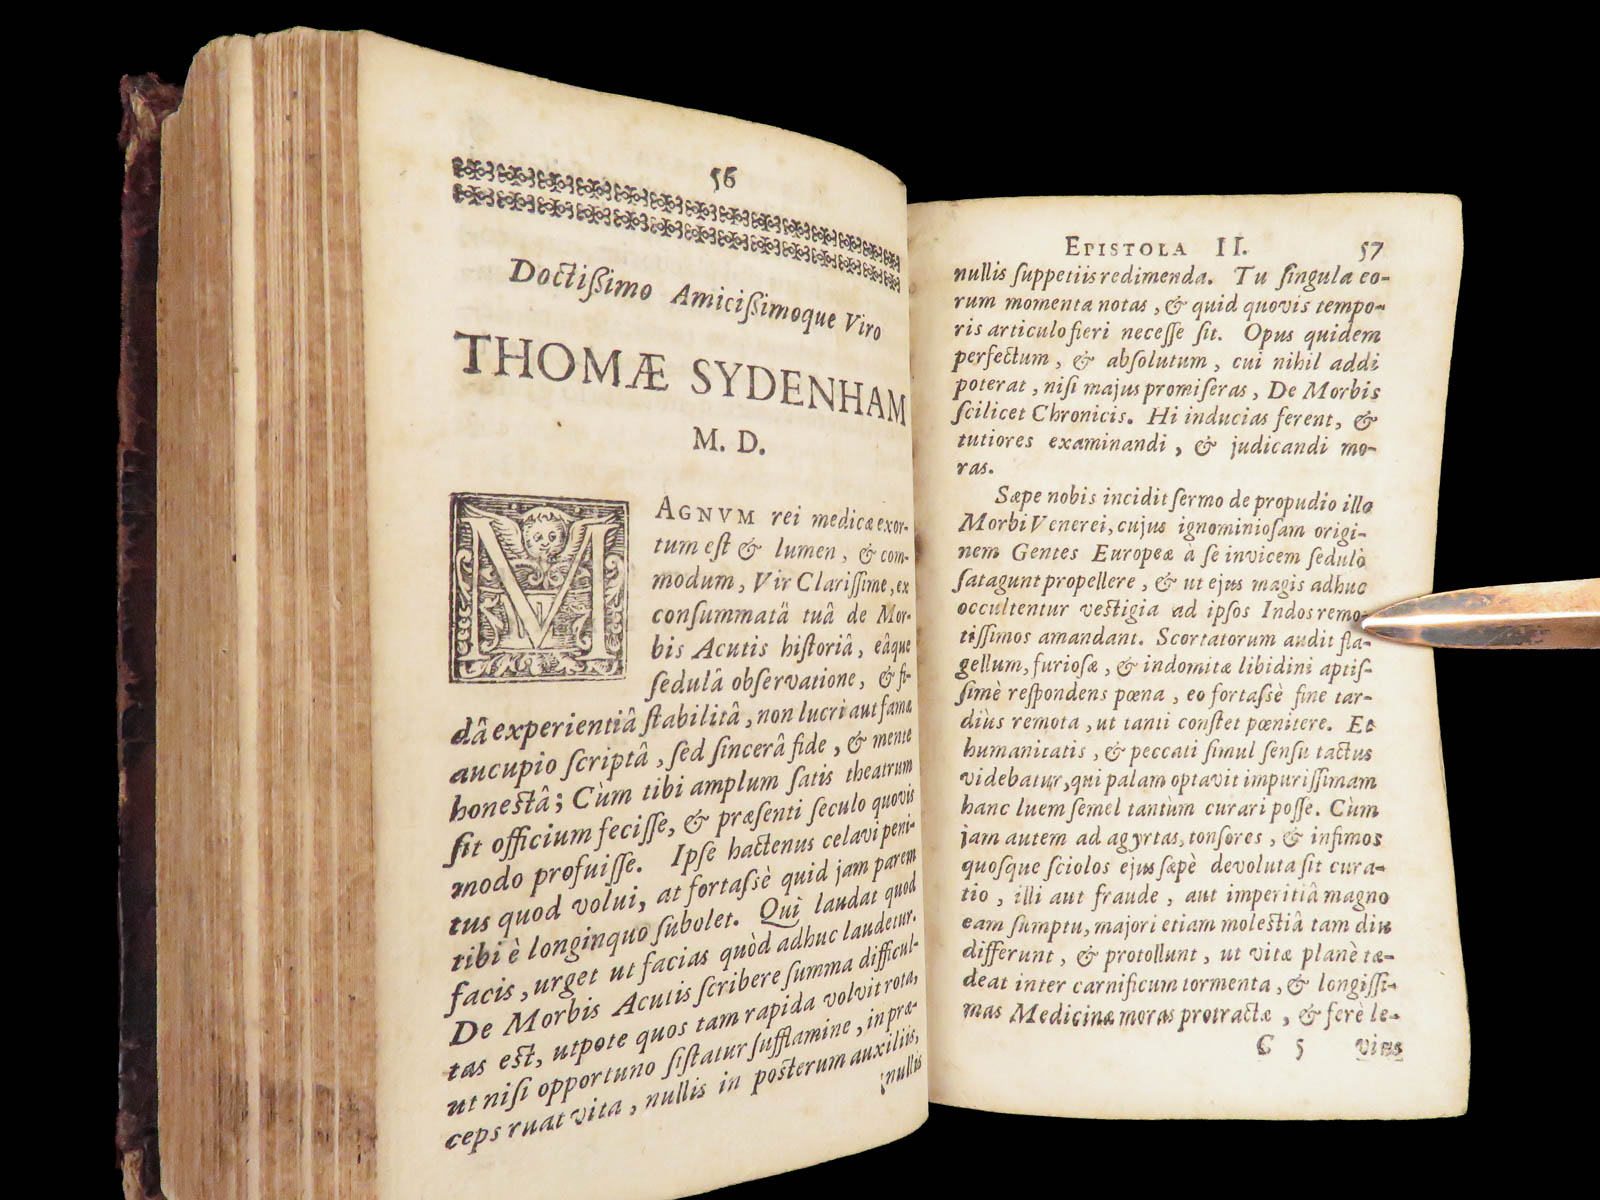 56
Doctißimo Amicißimoque Viro
THOMÆ SYDENHAM
M. D.
MAGNVM rei medicæ exor-
tum est & lumen, & com-
modum, Vir Clarissime, ex
consummatâ tuâ de Mor-
bis Acutis historiâ, eâque
sedulâ observatione, & fi-
dâ experientiâ stabilitâ, non lucri aut famæ
aucupio scriptâ, sed sincerâ fide, & mente
honestâ; Cùm tibi amplum satis theatrum
sit officium fecisse, & præsenti seculo quovis
modo profuisse. Ipse hactenus celavi peni-
tus quod volui, at fortassè quid jam parem
tibi è longinquo subolet. Qui laudat quod
facis, urget ut facias quòd adhuc laudetur.
De Morbis Acutis scribere summa difficul-
tas est, utpote quos tam rapida volvit rota,
ut nisi opportuno sistatur sufflamine, in præ-
ceps ruat vita, nullis in posterum auxiliis,
nullis
EPISTOLA II. 57
nullis suppetiis redimenda. Tu singula eo-
rum momenta notas, & quid quovis tempo-
ris articulo fieri necesse sit. Opus quidem
perfectum, & absolutum, cui nihil addi
poterat, nisi majus promiseras, De Morbis
scilicet Chronicis. Hi inducias ferent, &
tutiores examinandi, & judicandi mo-
ras.
Sæpe nobis incidit sermo de propudio illo
Morbi Venerei, cujus ignominiosam origi-
nem Gentes Europeæ à se invicem sedulò
satagunt propellere, & ut ejus magis adhuc
occultentur vestigia ad ipsos Indos remo-
tissimos amandant. Scortatorum audit fla-
gellum, furiosæ, & indomitæ libidini aptis-
simè respondens pœna, eo fortassè fine tar-
diùs remota, ut tanti constet pœnitere. Et
humanitatis, & peccati simul sensu tactus
videbatur, qui palam optavit impurissimam
hanc luem semel tantùm curari posse. Cùm
jam autem ad agyrtas, tonsores, & infimos
quosque sciolos ejus sæpè devoluta sit cura-
tio, illi aut fraude, aut imperitiâ magno
eam sumptu, majori etiam molestiâ tam diu
differunt, & protollunt, ut vitæ planè tæ-
deat inter carnificum tormenta, & longissi-
mas Medicinæ moras protractæ, & ferè le-
C 5 vius